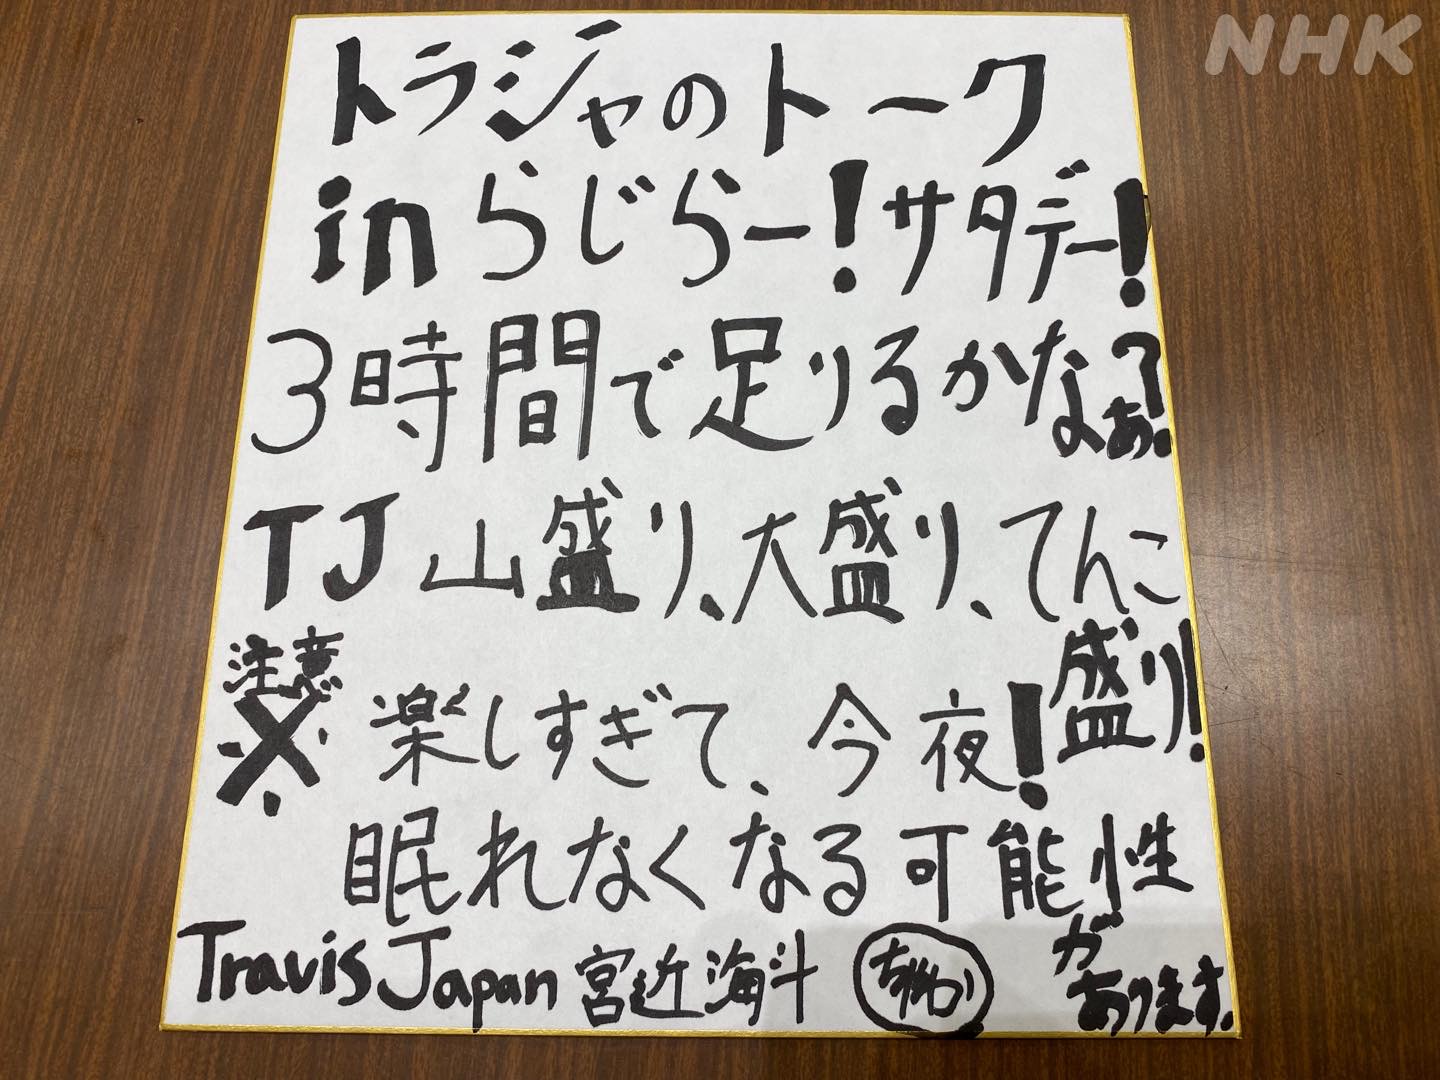 NHK
トラジャのトーク
in らじらー!サタデー!
3時間で足りるかなぁ?
TJ 山盛り、大盛り、てんこ
盛り!
注意
※ 楽しすぎて、今夜!
眠れなくなる可能性
があります。
Travis Japan 宮近海斗 ちゃか